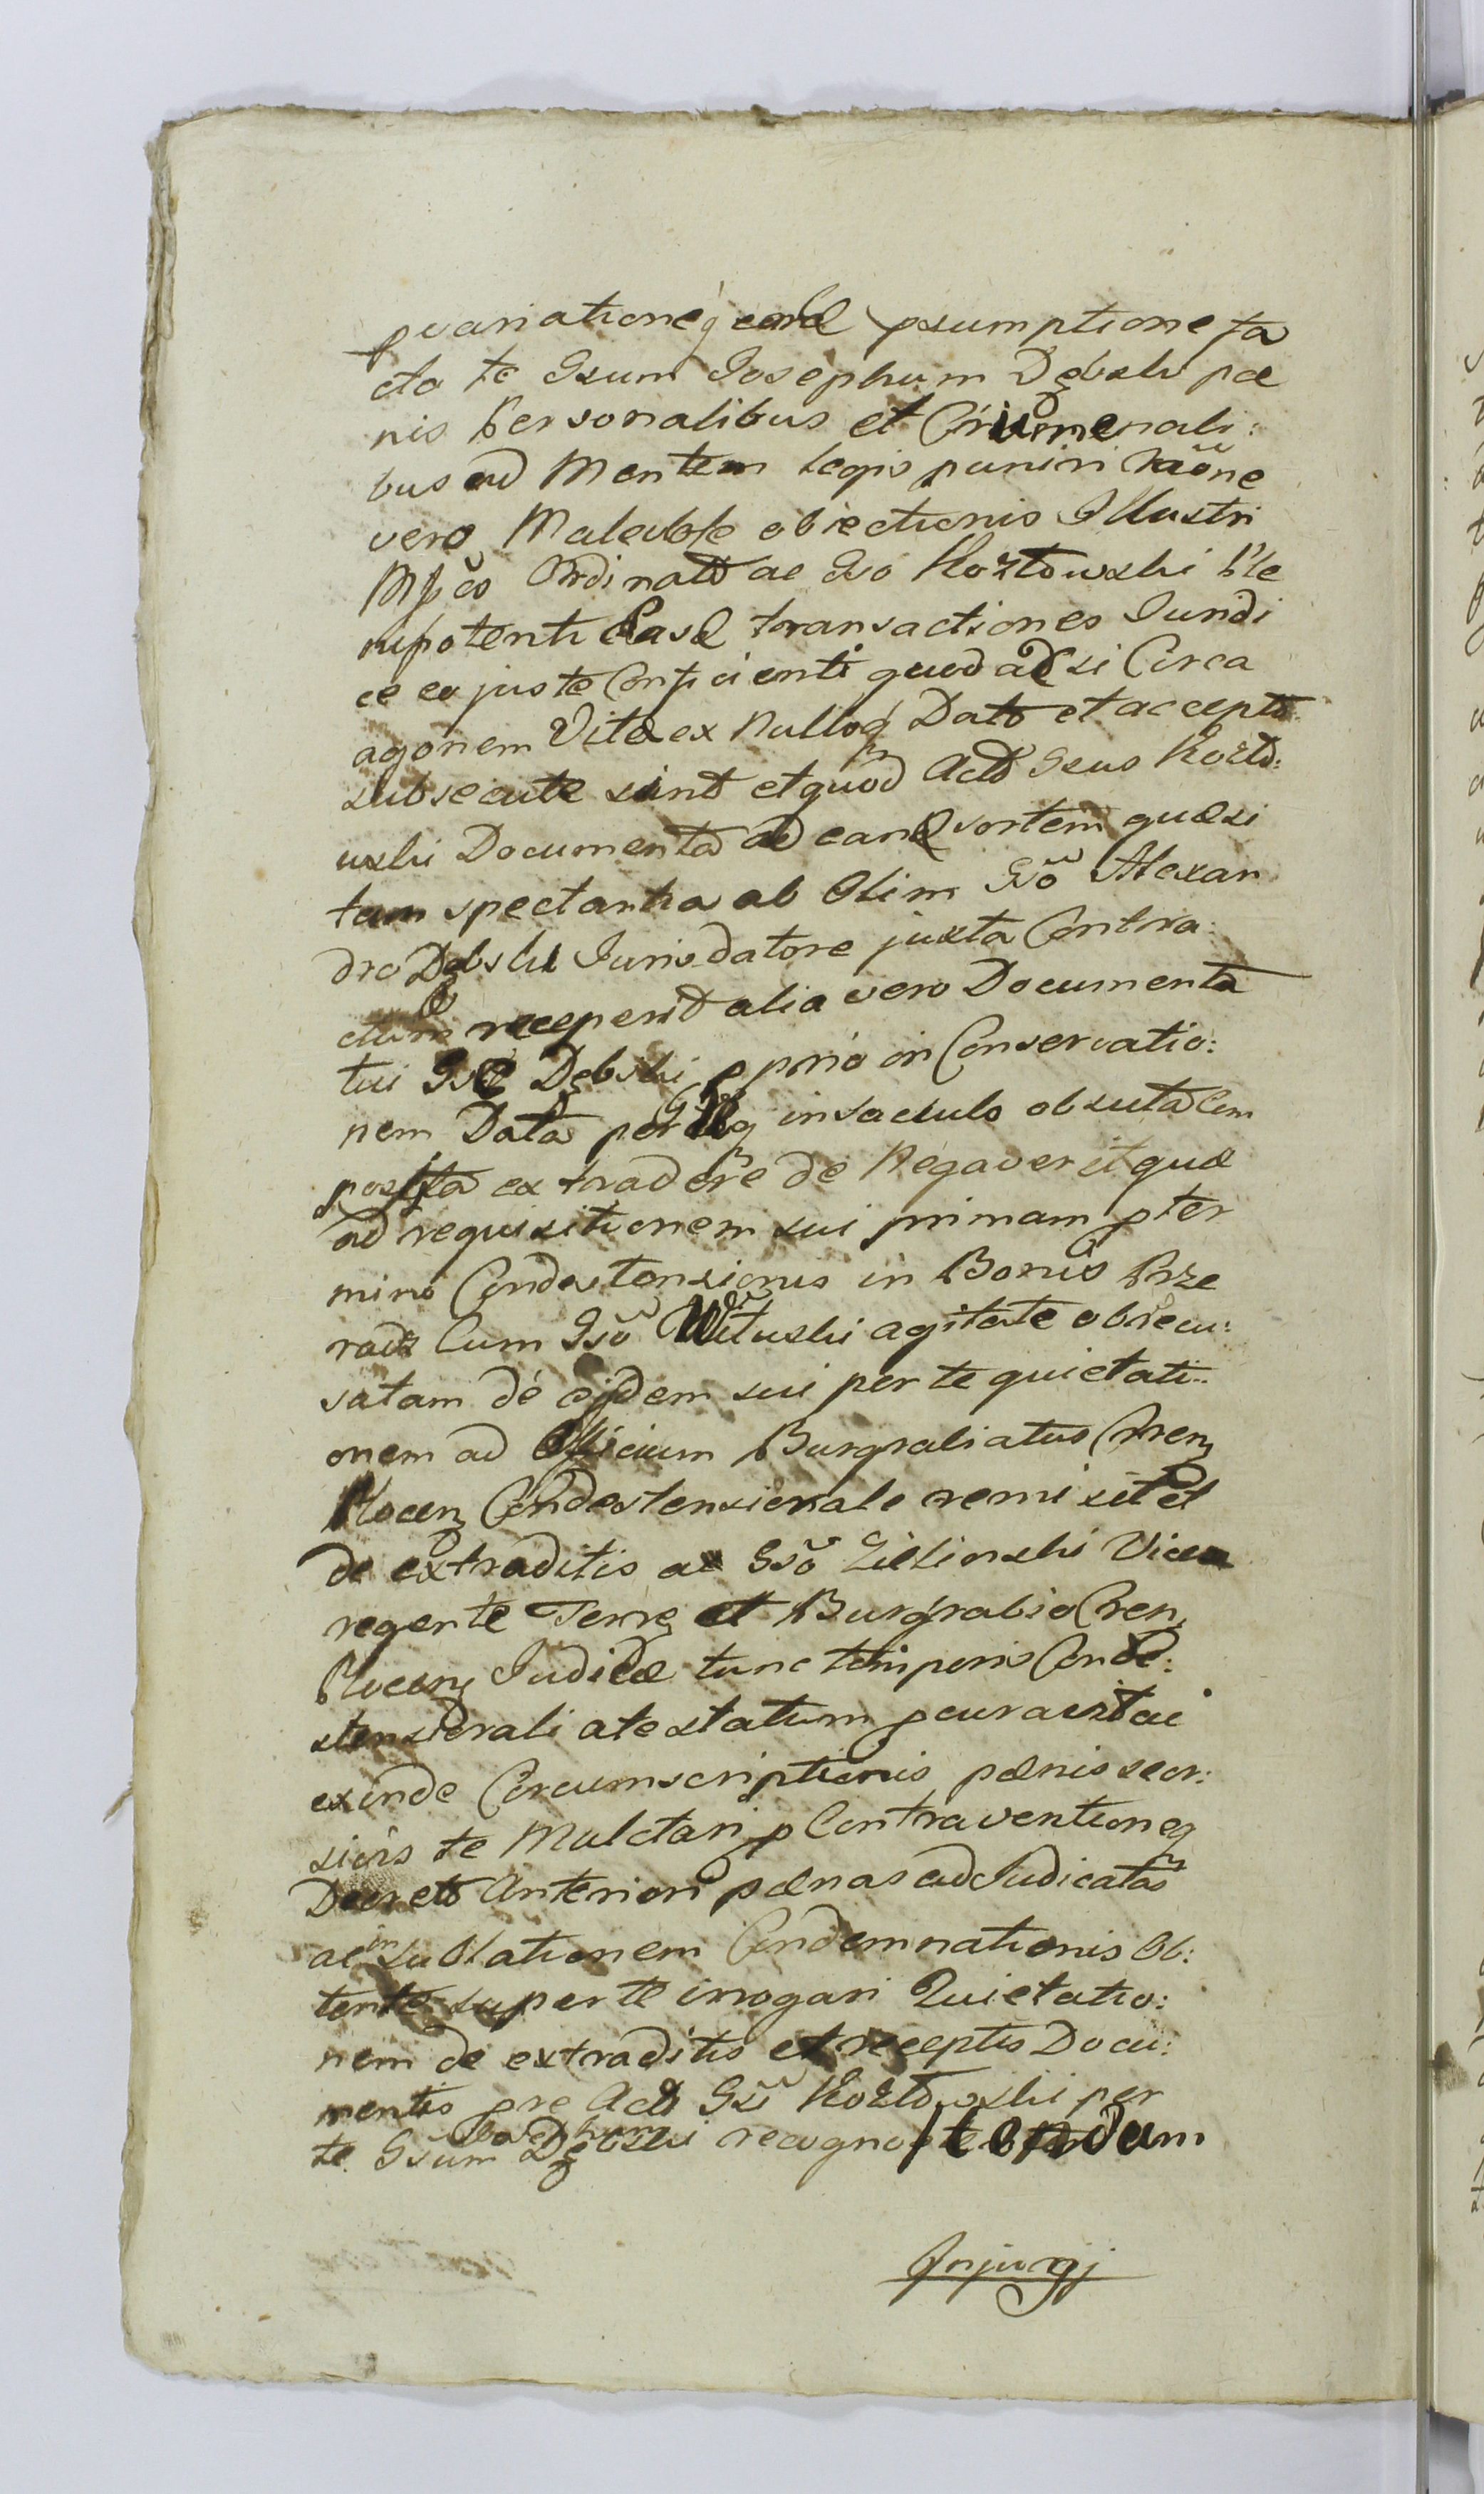 pvariationeq eard psumptione fa
cta te Gsum Josephum Dębski pæ
nis Personalibus et Criminali:
bus ad Mentem Legis puniri Raõne
vero Maleable obiectionis Illustri
Mfco Ordinato ac Gso Kozłowski Ple
nipotenti Easd transactiones Juridi
ce ea juste Conficienti quod ad si Circa
agonem Vitæ ex Nulloq Dato et accepto
subsecute sint et quod Acto Gsus Kozło:
wski Documenta ad eand sortem quæsi
tam spectantia ab Olim Gso Alexan
dro Dębski Jurisdatore juxta Contra:
ctum receperit alia vero Documenta
tui Gsi Dębski pprio in Conservatio:
nem Data in sacculo obsuta Com
posita extradere de Negaverit quæ
ad requisitionem sui primam p ter
mino Condestensionis in Bonis Prze
rady Cum Gso Witulski agitate obrecu:
satam de ejdem sui per te quietati:
onem ad Officium Burgrabiatus Cren
Plocen Condestensionale remisit et
de extraditis ac Gso Zielinski Vice
regente Terre et Burgrabio Cren
Plocen Judice tunc temporis Conde:
stensionali atestatum pcuravit ac
exinde Circumscriptionis pænis seor:
sivis te Mulctari p Contraventioneq
Decreto Anteriori pænas adJudicatas
ac in sublationem Condemnationis Ob:
tente super te irrogari Quietatio:
nem de extraditis et receptis Docu:
mentis pre Acto Gsi Kozłowski per
te Gsum Josephum Dębski recognoscendam
Injungj